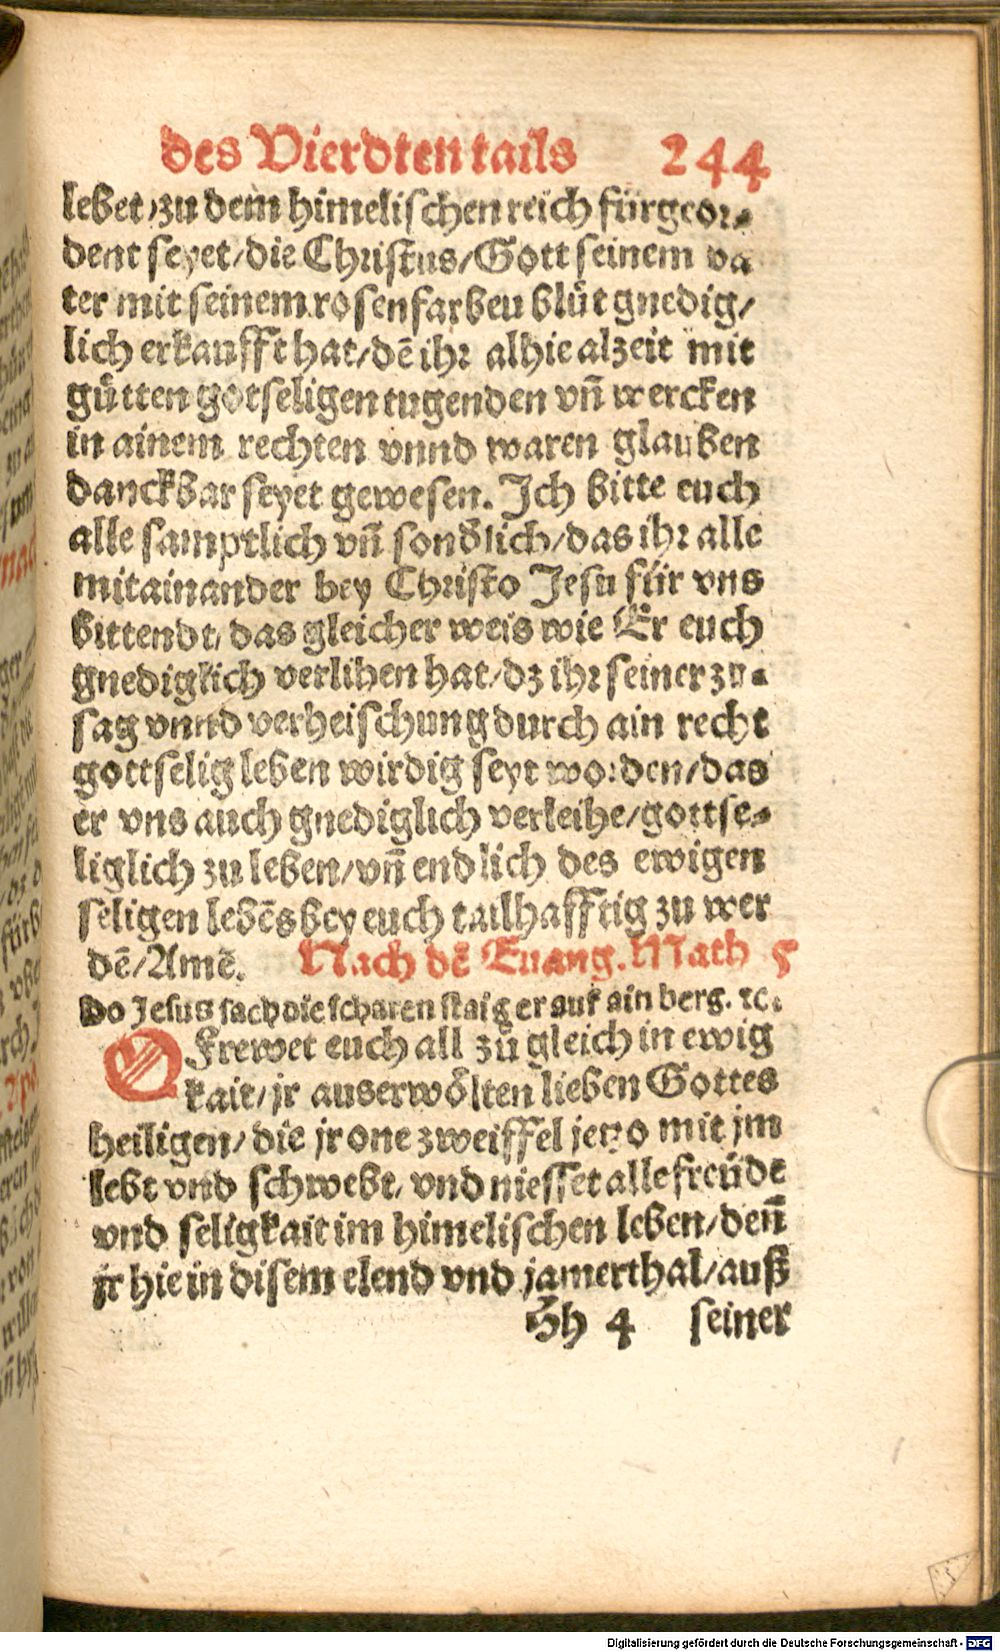 des Vierdten tails 244
lebet / zu dem himelischen reich fürgeor-
dent seyet / die Christus / Gott seinem va
ter mit seinem rosenfarben blůt gnedig /
lich erkaufft hat / dē ihr alhie alzeit mit
gůtten gotseligen tugenden vñ wercken
in ainem rechten vnnd waren glauben
danckbar seyet gewesen. Ich bitte euch
alle samptlich vñ sondlich / das ihr alle
mitainander bey Christo Jesu für vns
bittendt / das gleicher weis wie Er euch
gnediglich verlihen hat / dz ihr seiner zu-
sag vnnd verheischung durch ain recht
gottselig leben wirdig seyt worden / das
er vns auch gnediglich verleihe / gottse-
liglich zu leben / vñ endlich des ewigen
seligen lebēs bey euch tailhafftig zu wer
dē / Amē. Nach dē Euang. Math 5
Do Jesus sach die scharen staig er auf ain berg. ꝛc.
O Frewet euch all zů gleich in ewig
kait / jr auserwölten lieben Gottes
heiligen / die jr one zweiffel jetzo mit jm
lebt vnd schwebt / vnd niesset alle freüde
vnd seligkait im himelischen leben / denn̄
jr hie in disem elend vnd jamerthal / auß
Hh 4 seiner
Digitalisierung gefördert durch die Deutsche Forschungsgemeinschaft - DFG